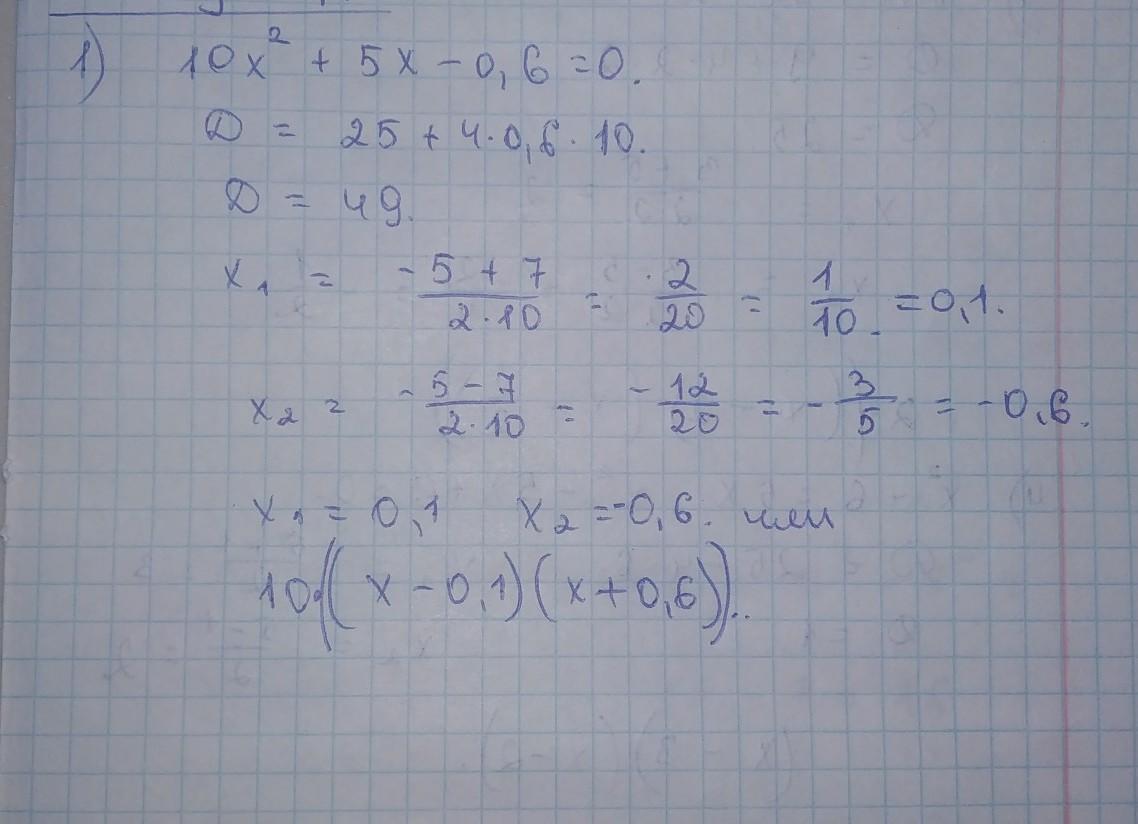 1) 10x² + 5x - 0,6 = 0.
D = 25 + 4·0,6·10.
D = 49.
x₁ = -5 + 7 / 2·10 = 2/20 = 1/10 = 0,1.
x₂ = -5 - 7 / 2·10 = -12/20 = -3/5 = -0,6.
x₁ = 0,1 x₂ = -0,6. или
10·((x - 0,1)(x + 0,6))..